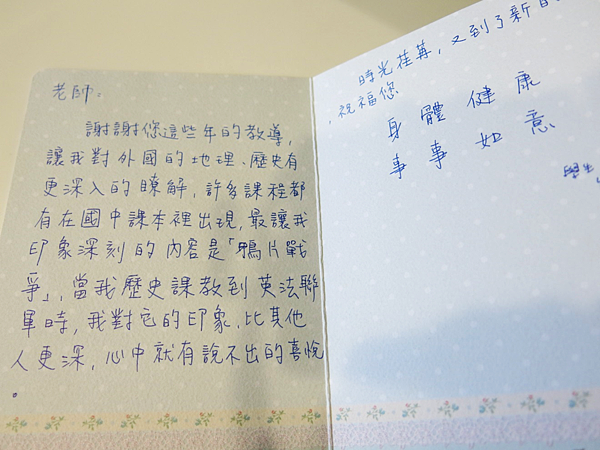 老師：
謝謝您這些年的教導，
讓我對外國的地理、歷史有
更深入的瞭解，許多課程都
有在國中課本裡出現，最讓我
印象深刻的內容是「鴨片戰
爭」，當我歷史課教到英法聯
軍時，我對它的印象，比其他
人更深，心中就有說不出的喜悅
。
時光荏苒，又到了新的
，祝福您
身體健康
事事如意
學生